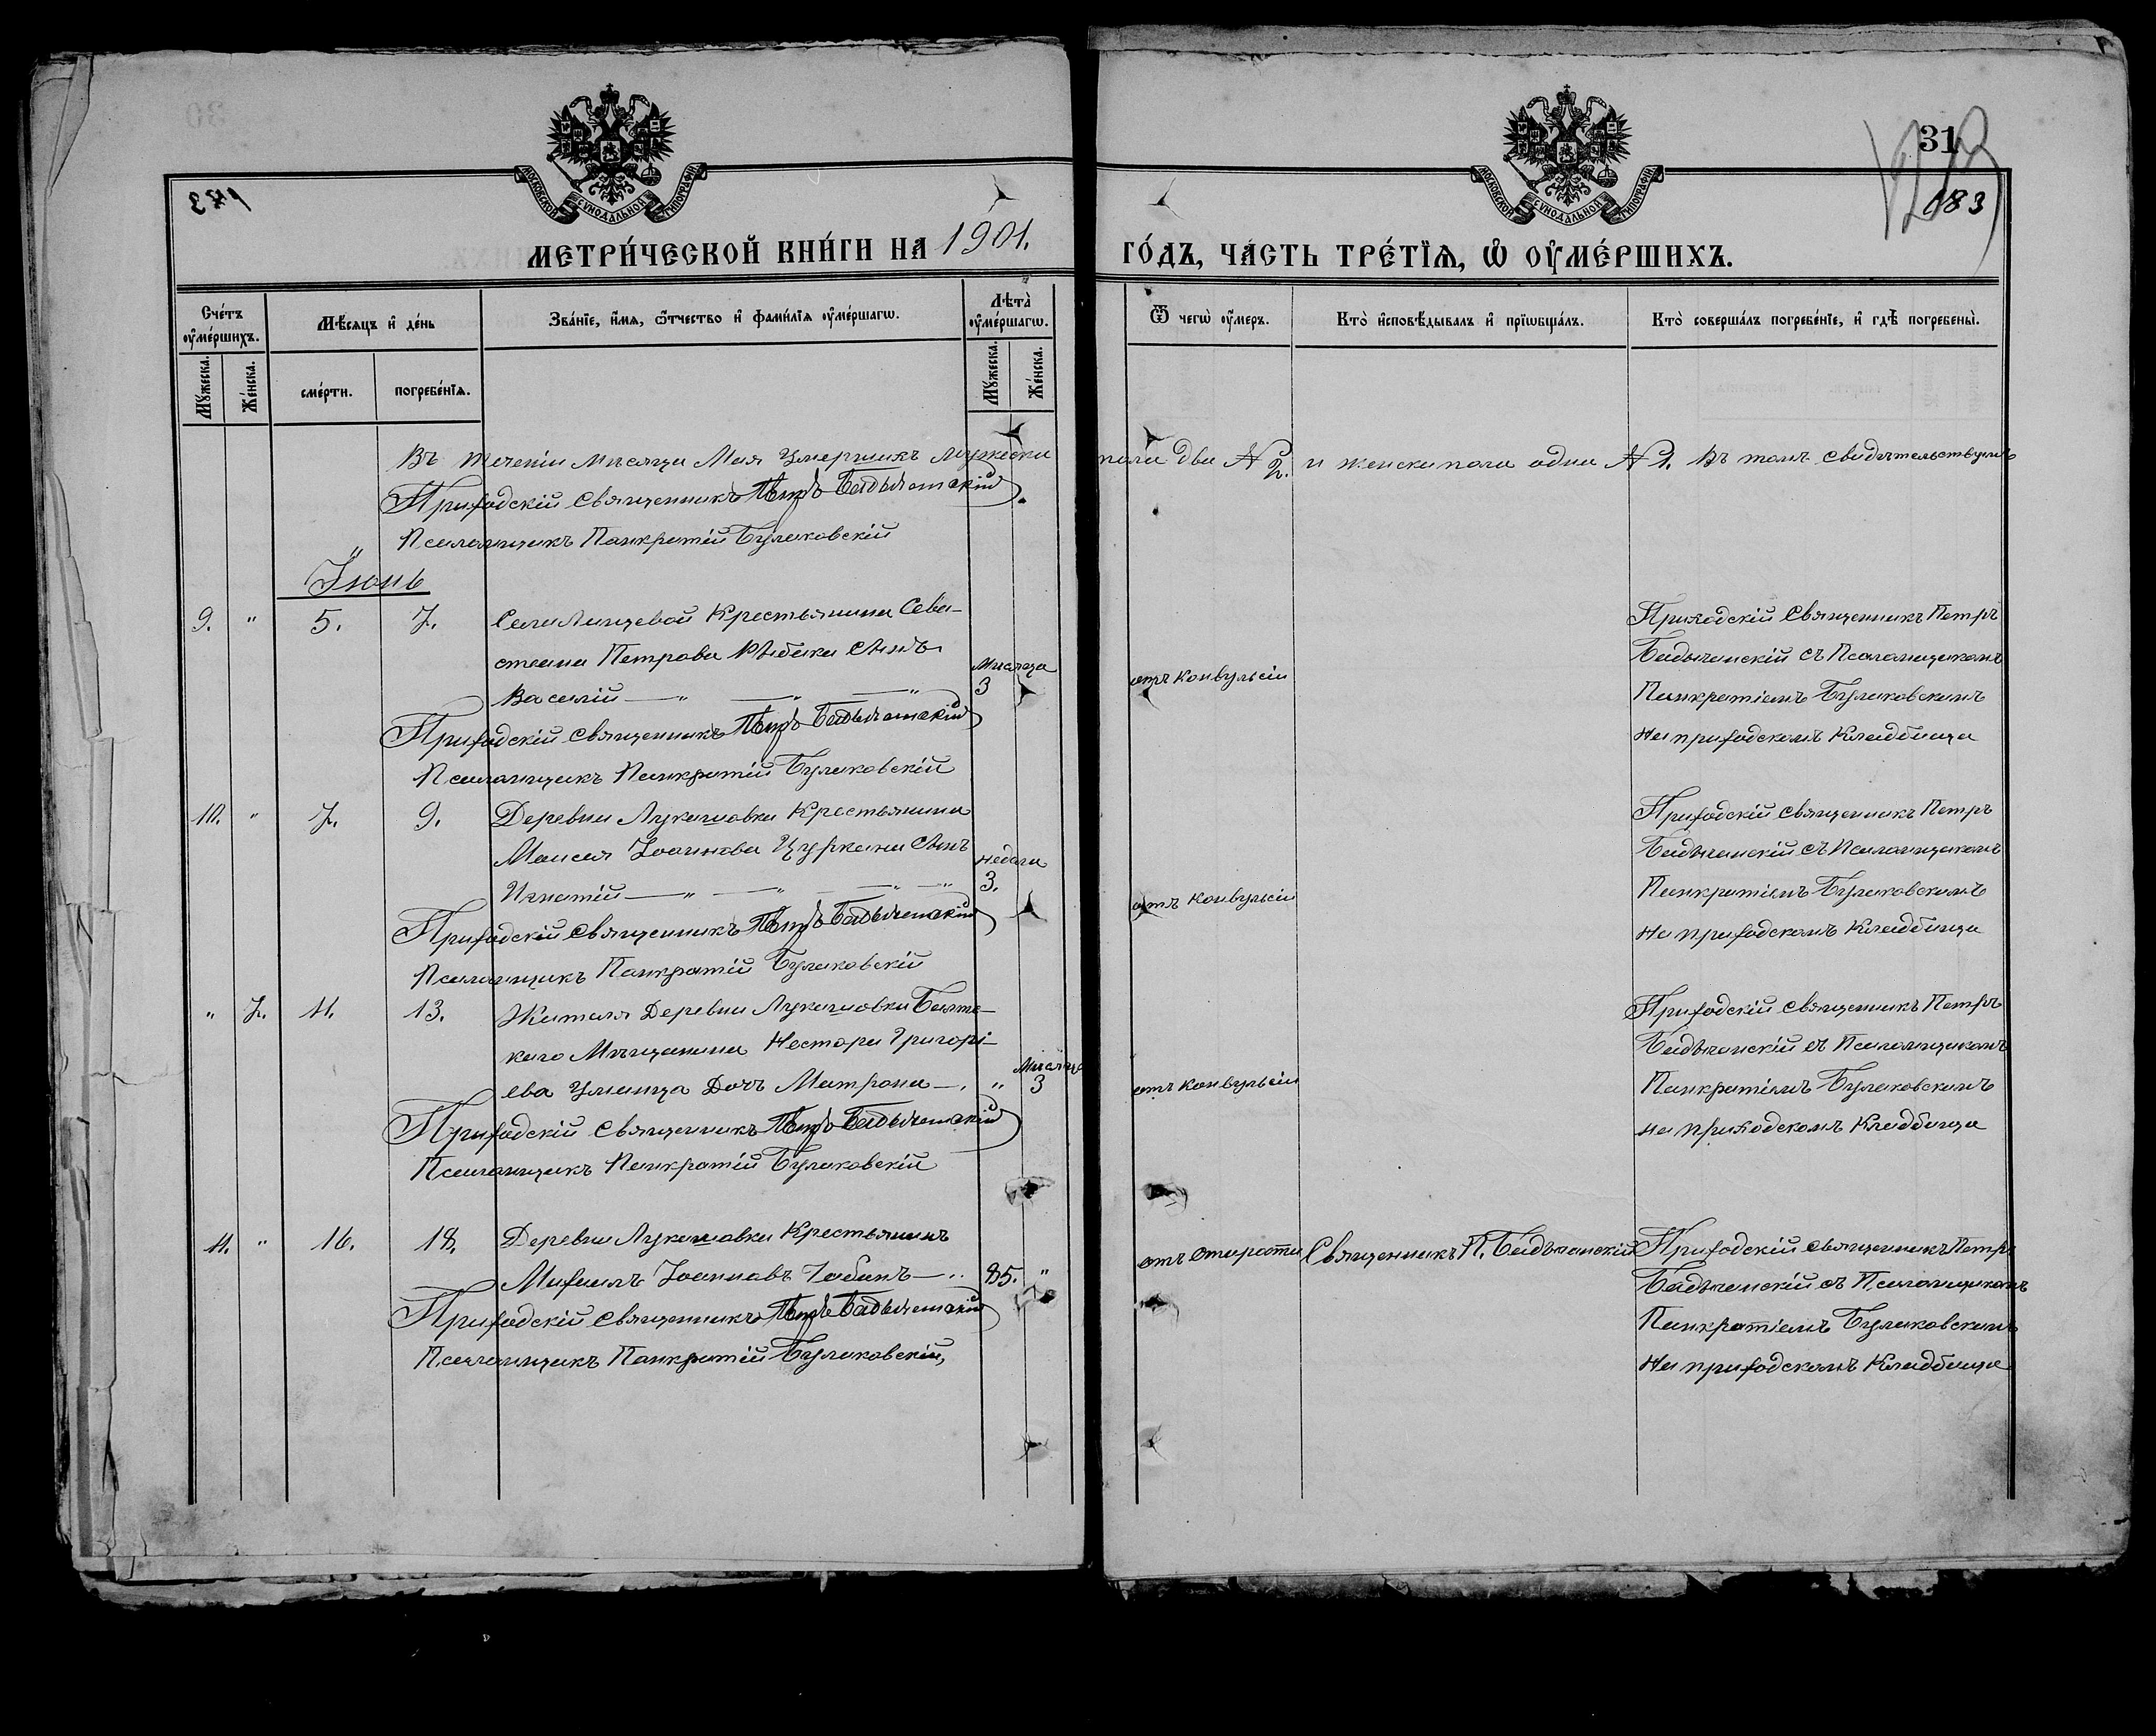 31
183
МОСКОВСКОЙ СѴНОДАЛЬНОЙ ТИПОГРАФІИ
МОСКОВСКОЙ СѴНОДАЛЬНОЙ ТИПОГРАФІИ
МЕТРИ́ЧЕСКОЙ КНИ́ГИ НА 1901. ГО́ДЪ, ЧА́СТЬ ТРЕ́ТЇѦ, Ѡ҆ ОУ҆МЕ́РШИХЪ.
Сче́тъ оу҆ме́ршихъ.
Мꙋ́жеска.
Же́нска.
Мѣ́сѧцъ и҆ де́нь
сме́рти.
погребе́нїѧ.
Зва́нїе, и҆́мѧ, ѻ҆́тчество и҆ фами́лїѧ оу҆ме́ршагѡ.
Лѣта̀ оу҆ме́ршагѡ.
Мꙋ́жеска.
Же́нска.
Ѿ чегѡ̀ оу҆́меръ.
Кто̀ и҆сповѣ́дывалъ и҆ прїѡбща́лъ.
Кто̀ соверша́лъ погребе́нїе, и҆ гдѣ̀ погребены̀.
Въ теченіи мѣсяца Мая умершихъ мужеска пола два № 2. и женска пола одна № 1. въ томъ свидѣтельствуемъ
Приходскій Священникъ Петръ
Псаломщикъ Панкратій Буликовскій
Іюнь
9. " 5. 7. Села Линцевой Крестьянина Сева-
стеана Петрова Рыбака сынъ
Василій — " — " — "
Мѣсяца
3
отъ конвульсіи
Приходскій Священникъ Петръ
съ Псаломщикомъ
Панкратіемъ Буликовскимъ
на приходскомъ кладбища
Приходскій Священникъ Петръ
Псаломщикъ Панкратій Буликовскій
10. " 7. 9. Деревни Лукашовки Крестьянина
Моисея Іоаннова Цуркана сынъ
Игнатій — " — " — " — "
недели
3.
отъ конвульсіи
Приходскій Священникъ Петръ
съ Псаломщикомъ
Панкратіемъ Буликовскимъ
на приходскомъ кладбища
Приходскій Священникъ Петръ
Псаломщикъ Панкратій Буликовскій
" 7. 11. 13. Жителя Деревни Лукашовки
Мѣщанина Нестора Григорі-
ева Уманца Дочь Матрона — . "
Мѣсяца
3
отъ конвульсіи
Приходскій Священникъ Петръ
съ Псаломщикомъ
Панкратіемъ Буликовскимъ
на приходскомъ кладбища
Приходскій Священникъ Петръ
Псаломщикъ Панкратій Буликовскій
11. " 16. 18. Деревни Лукашовки Крестьянинъ
Михаилъ Іоанновъ Гобанъ — .. 85. "
отъ старости
Священникъ П.
Приходскій Священникъ Петръ
съ Псаломщикомъ
Панкратіемъ Буликовскимъ
на приходскомъ кладбища
Приходскій Священникъ Петръ
Псаломщикъ Панкратій Буликовскій,